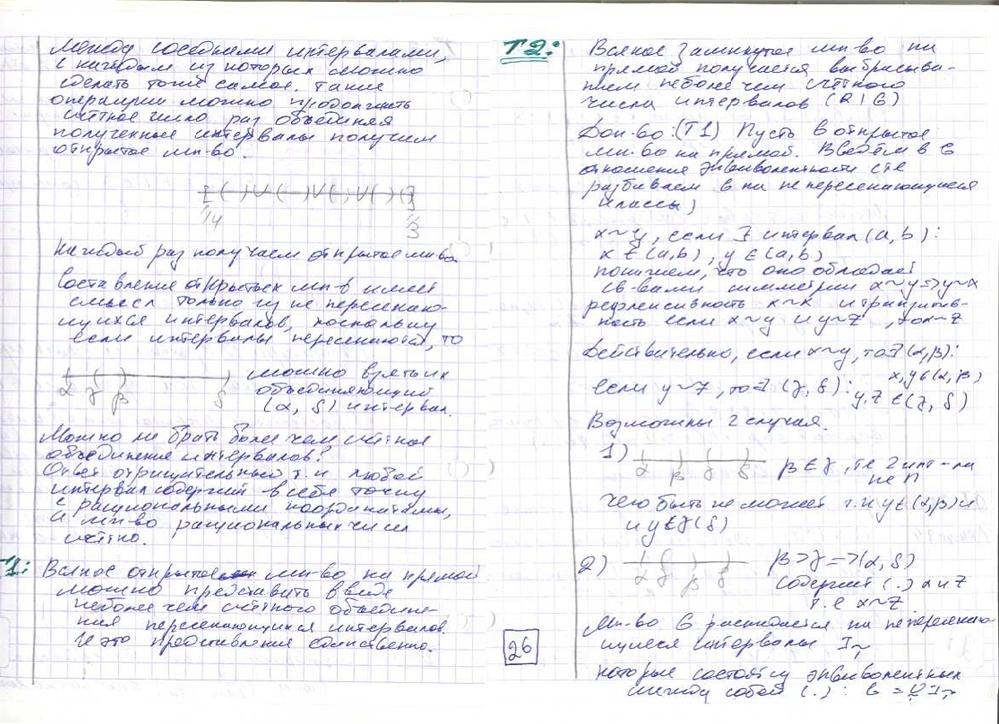 между соседними интервалами,
с каждым из которых можно
сделать тоже самое. Такие
операции можно продолжать
счётное число раз объединяя
полученные интервалы получим
открытое мн-во.
1/4 1/3
На каждый раз получаем открытое мн-во
Составление открытых мн-в имеет
смысл только из не пересекаю-
щихся интервалов, поскольку
если интервалы пересекаются, то
α γ β δ можно взять их
объединяющий
(α, δ) интервал.
Можно ли брать более чем счётное
объединение интервалов?
Ответ отрицательный т.к любой
интервал содержит в себе точку
с рациональными координатами,
а мн-во рациональных чисел
счётно.
T1: Всякое открытое мн-во на прямой
можно представить в виде
не более чем счётного объедине-
ния пересекающихся интервалов.
и это представление единственно.
T2: Всякое замкнутое мн-во на
прямой получается выбрасыва-
нием не более чем счётного
числа интервалов (R \ G)
Док-во: (T1) Пусть G открытое
мн-во на прямой. Введём в G
отношение эквивалентности (те
разбиваем G на непересекающиеся
классы)
x~y, если ∃ интервал (a, b):
x ∈ (a, b), y ∈ (a, b)
покажем, что оно обладает
св-вами симметрии x~y => y~x
рефлексивность x~x и транзитив-
ность если x~y и y~z, то x~z
Действительно, если x~y, то ∃ (α, β):
x, y ∈ (α, β)
если y~z, то ∃ (γ, δ): y, z ∈ (γ, δ)
Возможны 2 случая.
1) α β γ δ β ≤ γ, те 2 инт-ла
не П
чего быть не может т.к y ∈ (α, β) и
и y ∈ γ (δ)
2) α γ β δ β > γ => (α, δ)
содержит (.) x и z
т.е x~z
Мн-во G распадается на непересекаю-
щиеся интервалы I
которые состоят из эквивалентных
между собой (.) : G = ∪ I
26